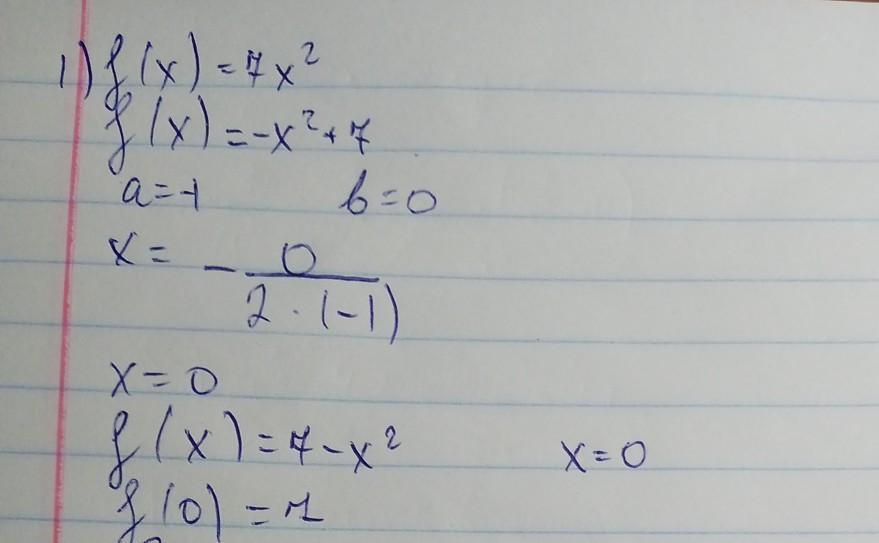 1) f(x)=7x²
f(x)=-x²+7
a=-1 b=0
x= - 0/2·(-1)
x=0
f(x)=7-x² x=0
f(0)=7